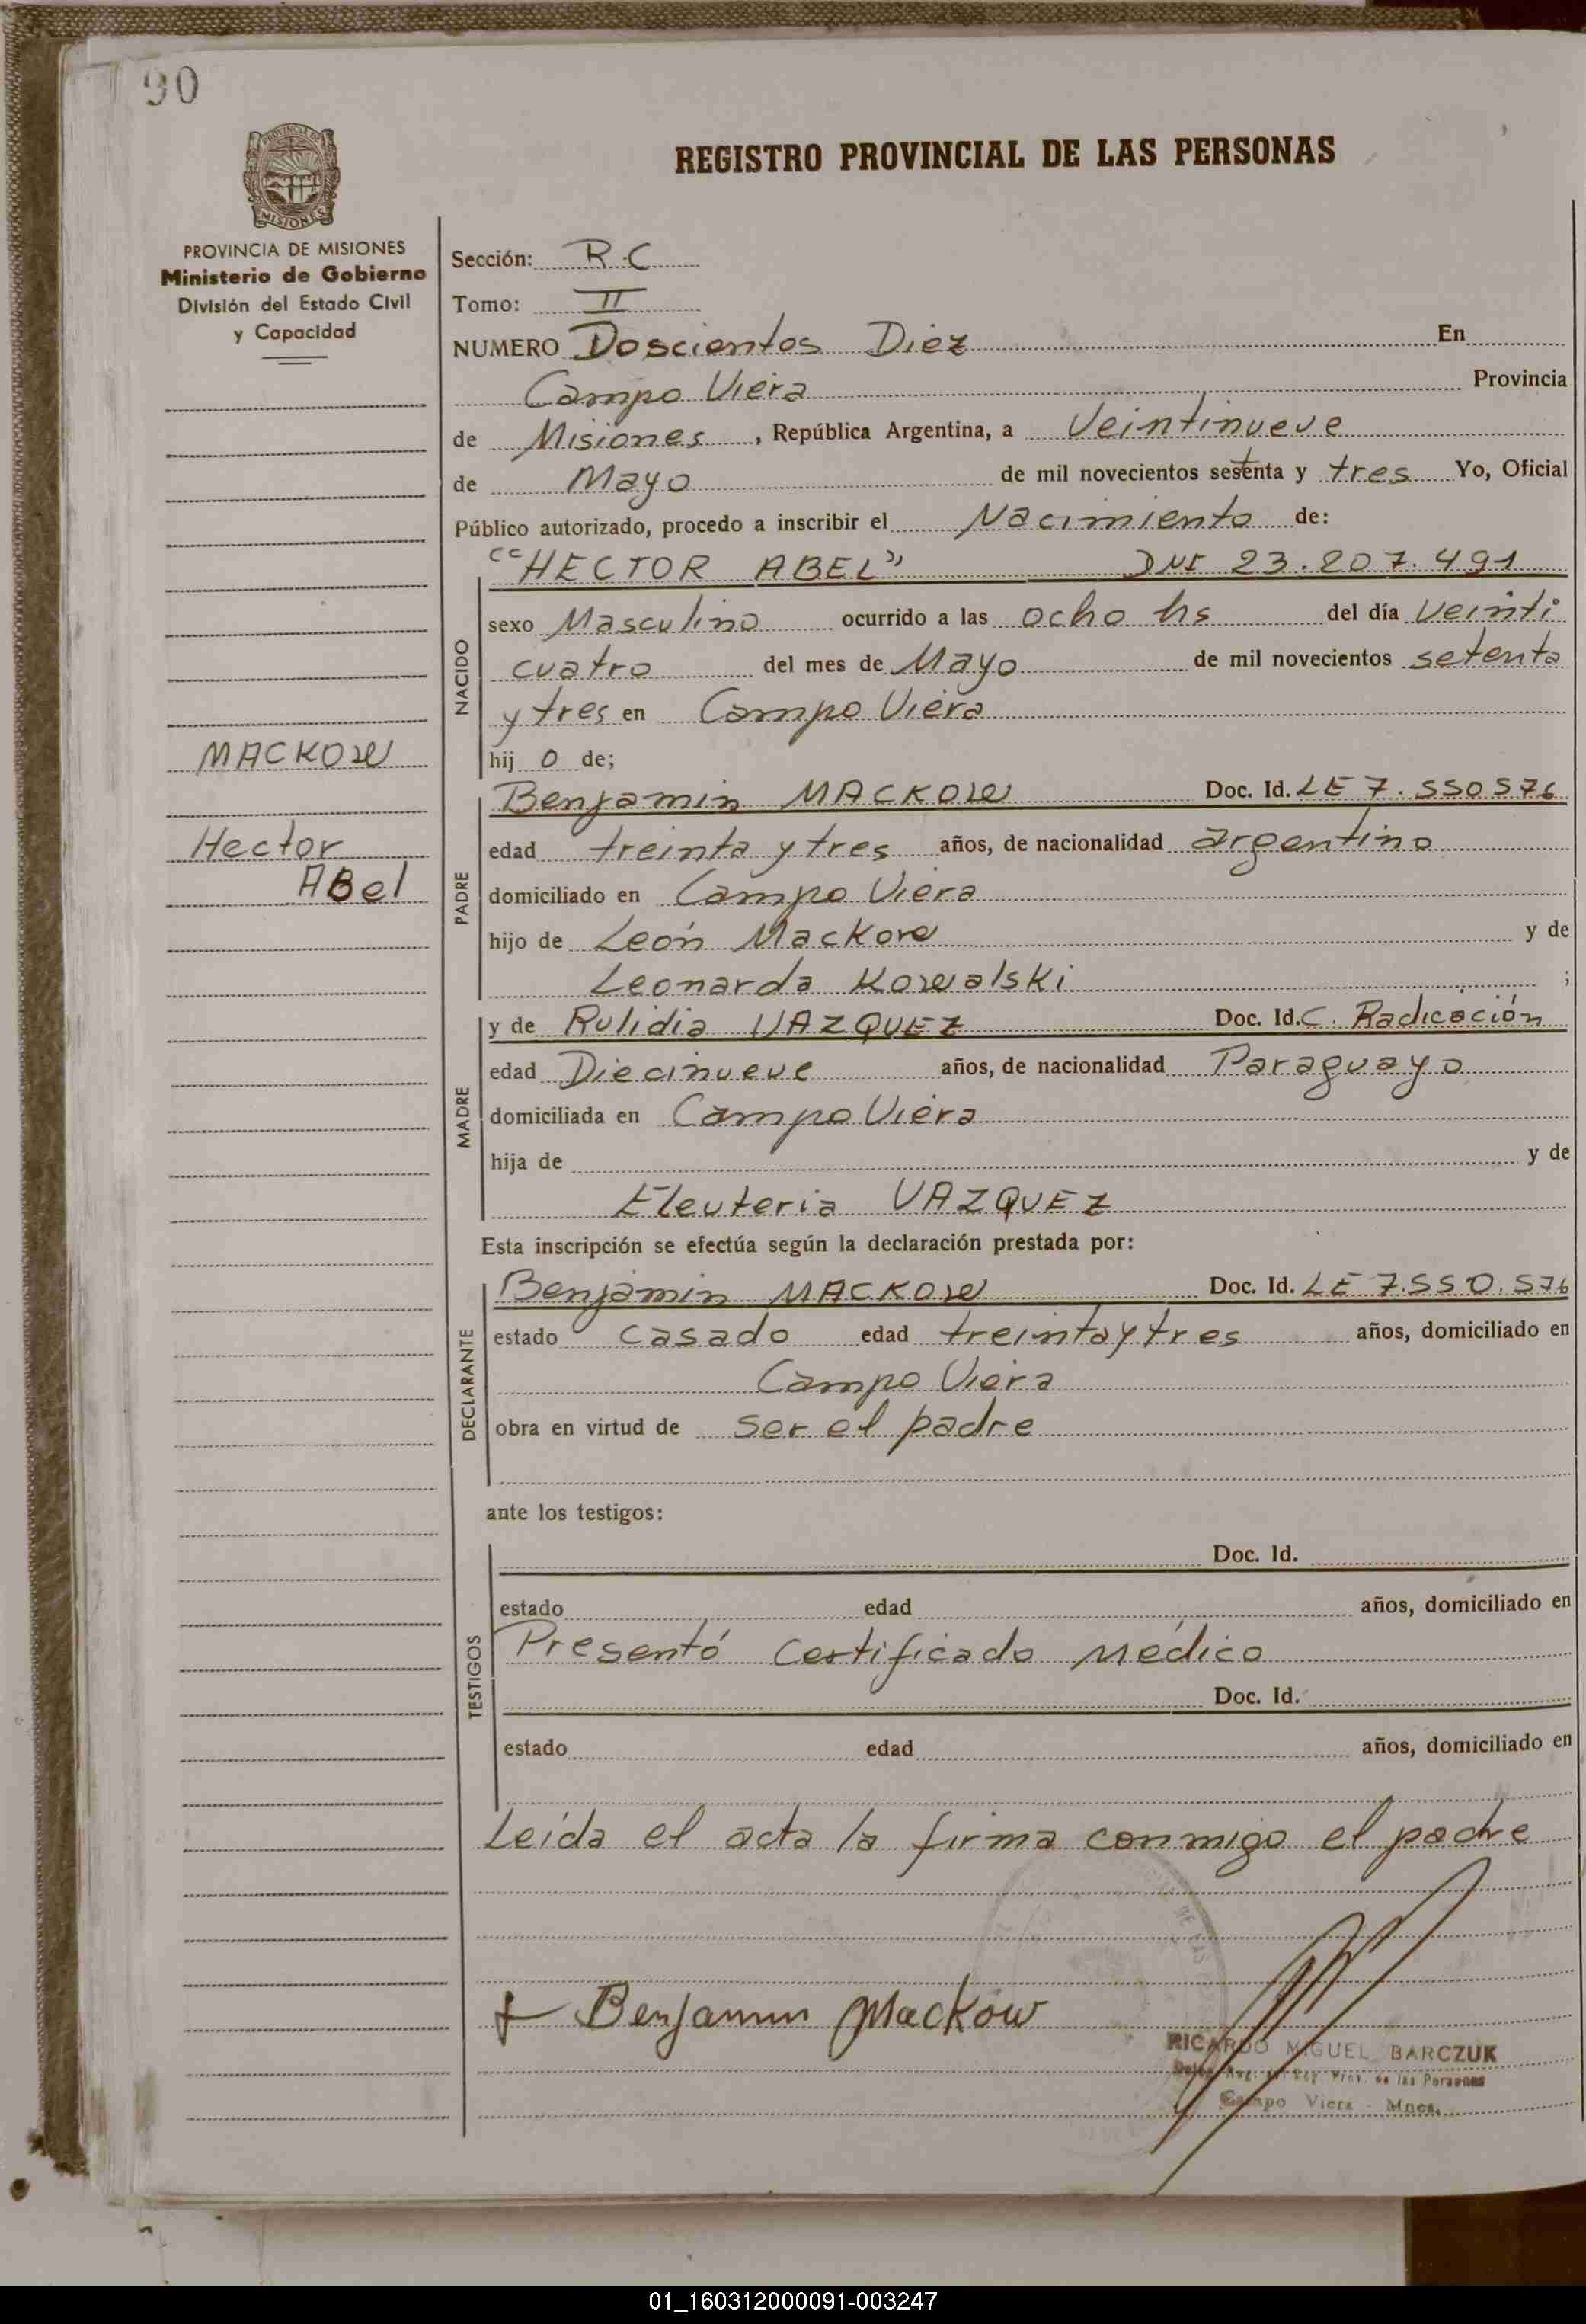 90
REGISTRO PROVINCIAL DE LAS PERSONAS
PROVINCIA DE MISIONES
Ministerio de Gobierno
División del Estado Civil
y Capacidad
MACKOW
Hector
ABel
Sección: R.C
Tomo: II
NUMERO Doscientos Diez En
Campo Viera Provincia
de Misiones, República Argentina, a Veintinueve
de Mayo de mil novecientos setenta y tres Yo, Oficial
Público autorizado, procedo a inscribir el Nacimiento de:
"HECTOR ABEL" DNI 23.207.491
NACIDO
sexo Masculino ocurrido a las ocho hs del día veinti
cuatro del mes de Mayo de mil novecientos setenta
y tres en Campo Viera
hij o de;
PADRE
Benjamin MACKOW Doc. Id. LE 7.550576
edad treinta y tres años, de nacionalidad argentino
domiciliado en Campo Viera
hijo de León Mackow y de
Leonarda Kowalski ;
MADRE
y de Rulidia VAZQUEZ Doc. Id. C. Radicación
edad Diecinueve años, de nacionalidad Paraguayo
domiciliada en Campo Viera
hija de y de
Eleuteria VAZQUEZ
Esta inscripción se efectúa según la declaración prestada por:
DECLARANTE
Benjamin MACKOW Doc. Id. LE 7.550.576
estado casado edad treinta y tres años, domiciliado en
Campo Viera
obra en virtud de ser el padre
ante los testigos:
TESTIGOS
Doc. Id.
estado edad años, domiciliado en
Presentó Certificado Médico
Doc. Id.
estado edad años, domiciliado en
Leída el acta la firma conmigo el padre
Benjamin Mackow
RICARDO MIGUEL BARCZUK
Prov. de las Personas
Campo Viera - Mnes.
01_160312000091-003247